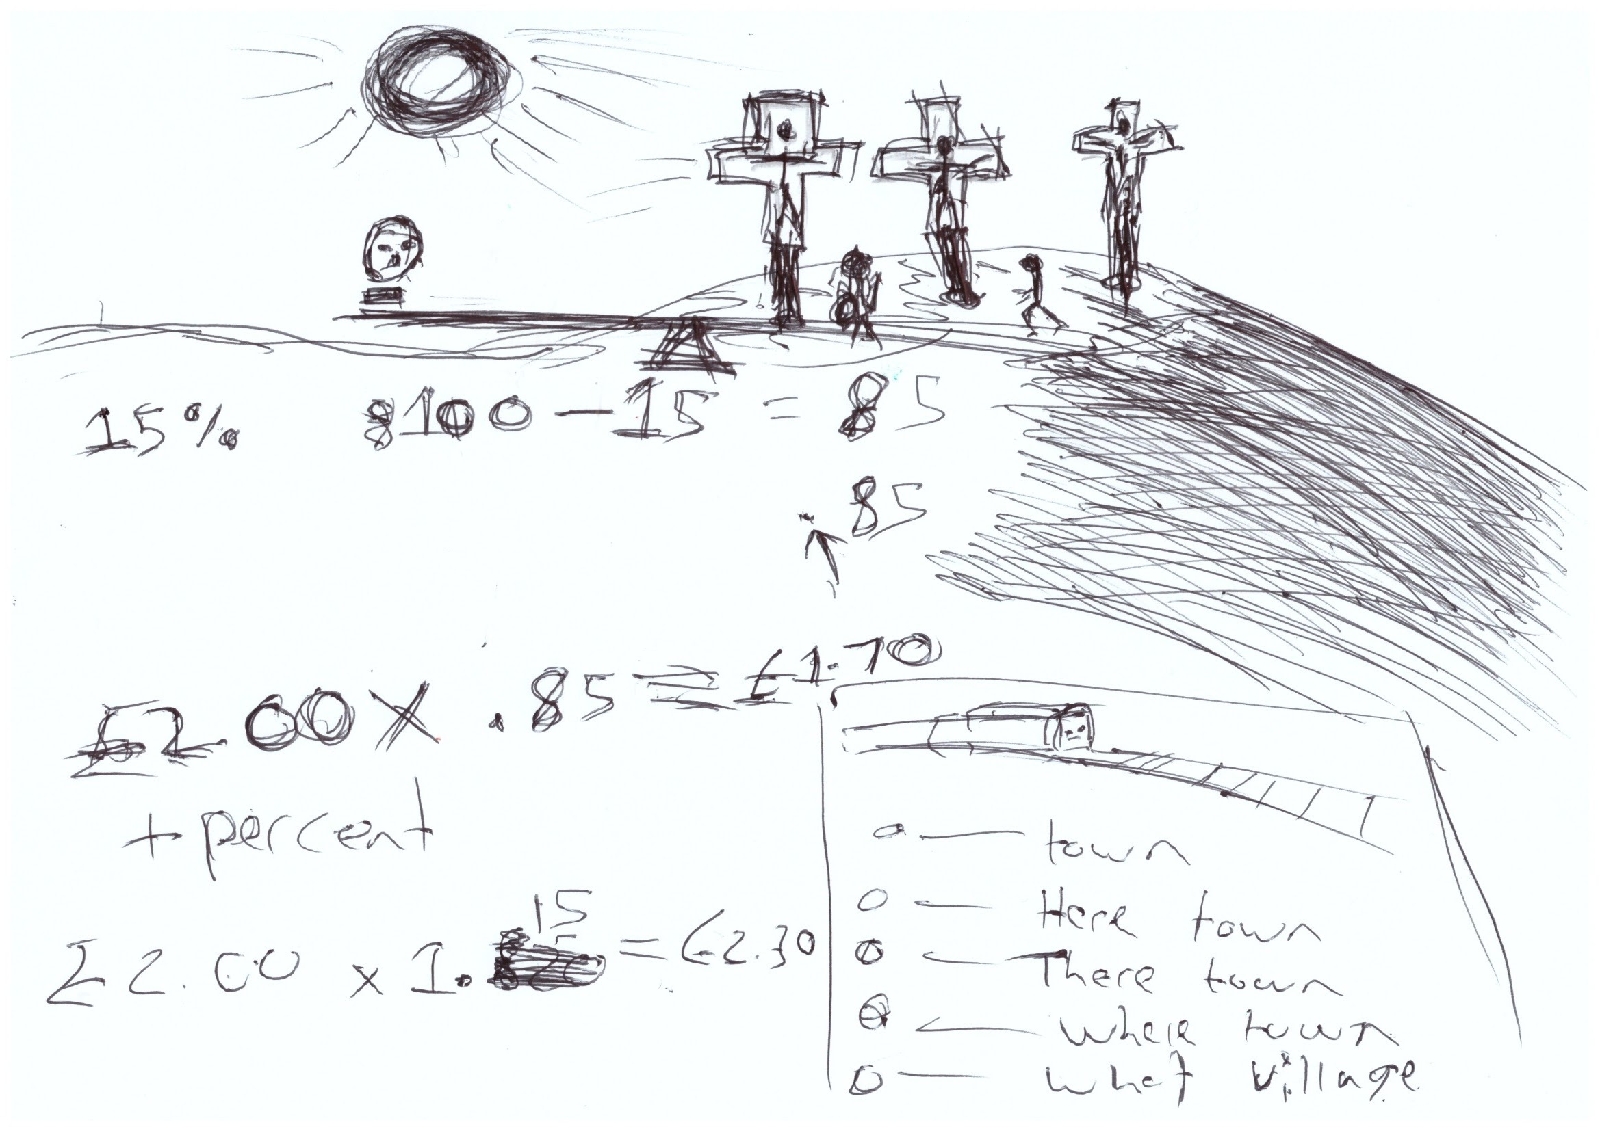 15% 8100 - 15 = 85
.85
£2.00 X .85 = £1.70
+ percent
£2.00 x 1.15 = £2.30
town
Here town
There town
Where town
What village